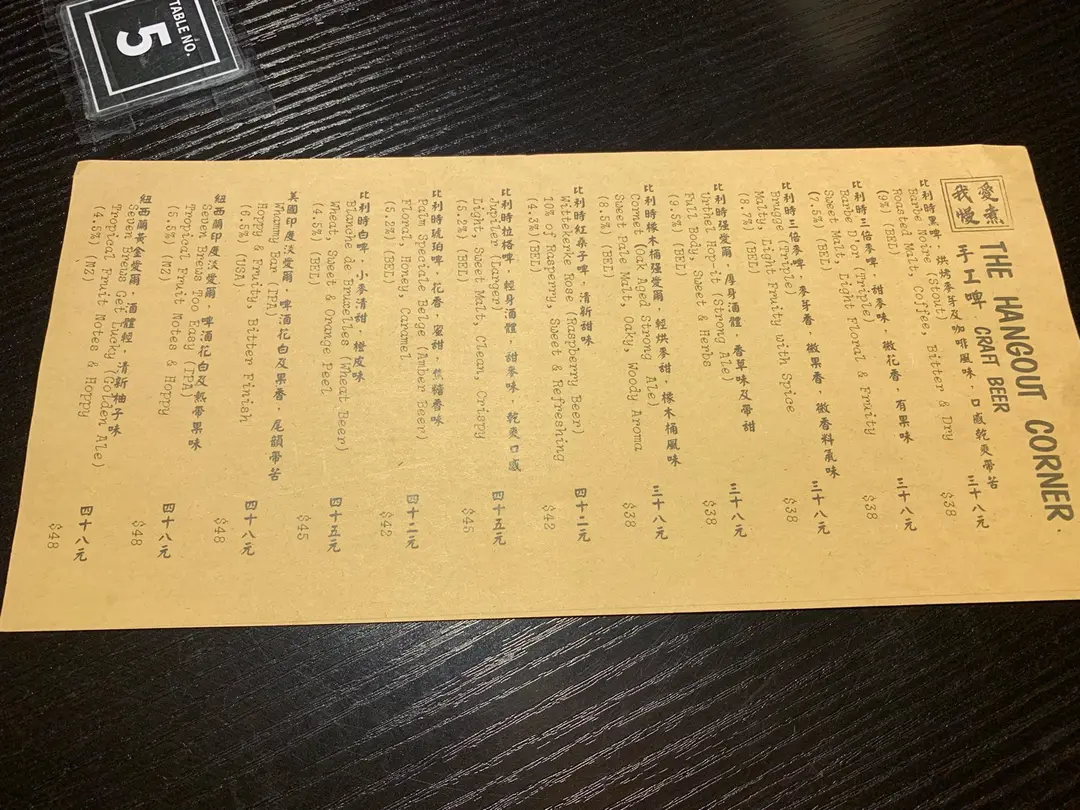 TABLE NO.
5
愛煮
我慢
THE HANGOUT CORNER.
手工啤 CRAFT BEER
比利時黑啤．烘烤麥芽及咖啡風味．口感乾爽帶苦
三十八元
Barbe Noire (Stout)
Roasted Malt, Coffee, Bitter & Dry
(9%) (BEL)
$38
比利時三倍麥啤．甜麥味．微花香．有果味
三十八元
Barbe D'or (Triple)
Sweet Malt, Light Floral & Fruity
(7.5%) (BEL)
$38
比利時三倍麥啤．麥芽香．微果香．微香料氣味
三十八元
Brugge (Triple)
Malty, Light Fruity with Spice
(8.7%) (BEL)
$38
比利時强愛爾．厚身酒體．香草味及帶甜
三十八元
Urthel Hop it (Strong Ale)
Full Body, Sweet & Herbs
(9.5%) (BEL)
$38
比利時橡木桶强愛爾．輕烘麥甜．橡木桶風味
三十八元
Cornet (Oak Aged Strong Ale)
Sweet Pale Malt, Oaky, Woody Aroma
(8.5%) (BEL)
$38
比利時紅桑子啤．清新甜味
四十二元
Wittekerke Rose (Raspberry Beer)
10% of Rasperry, Sweet & Refreshing
(4.3%) (BEL)
$42
比利時拉格啤．輕身酒體．甜麥味．乾爽口感
四十五元
Jupiler (Larger)
Light, Sweet Malt, Clean, Crispy
(5.2%) (BEL)
$45
比利時琥珀啤．花香．蜜甜．焦糖香味
四十二元
Palm Speciale Belge (Amber Beer)
Floral, Honey, Caramel
(5.2%) (BEL)
$42
比利時白啤．小麥清甜．橙皮味
四十五元
Blanche de Bruxelles (Wheat Beer)
Wheat, Sweet & Orange Peel
(4.5%) (BEL)
$45
美國印度淡愛爾．啤酒花白及果香．尾韻帶苦
四十八元
Whammy Bar (IPA)
Hoppy & Fruity, Bitter Finish
(6.5%) (USA)
$48
紐西蘭印度淡愛爾．啤酒花白及熱帶果味
四十八元
Seven Brews Too Easy (IPA)
Tropical Fruit Notes & Hoppy
(5.5%) (NZ)
$48
紐西蘭黃金愛爾．酒體輕．清新柚子味
四十八元
Seven Brews Get Lucky (Golden Ale)
Tropical Fruit Notes & Hoppy
(4.5%) (NZ)
$48